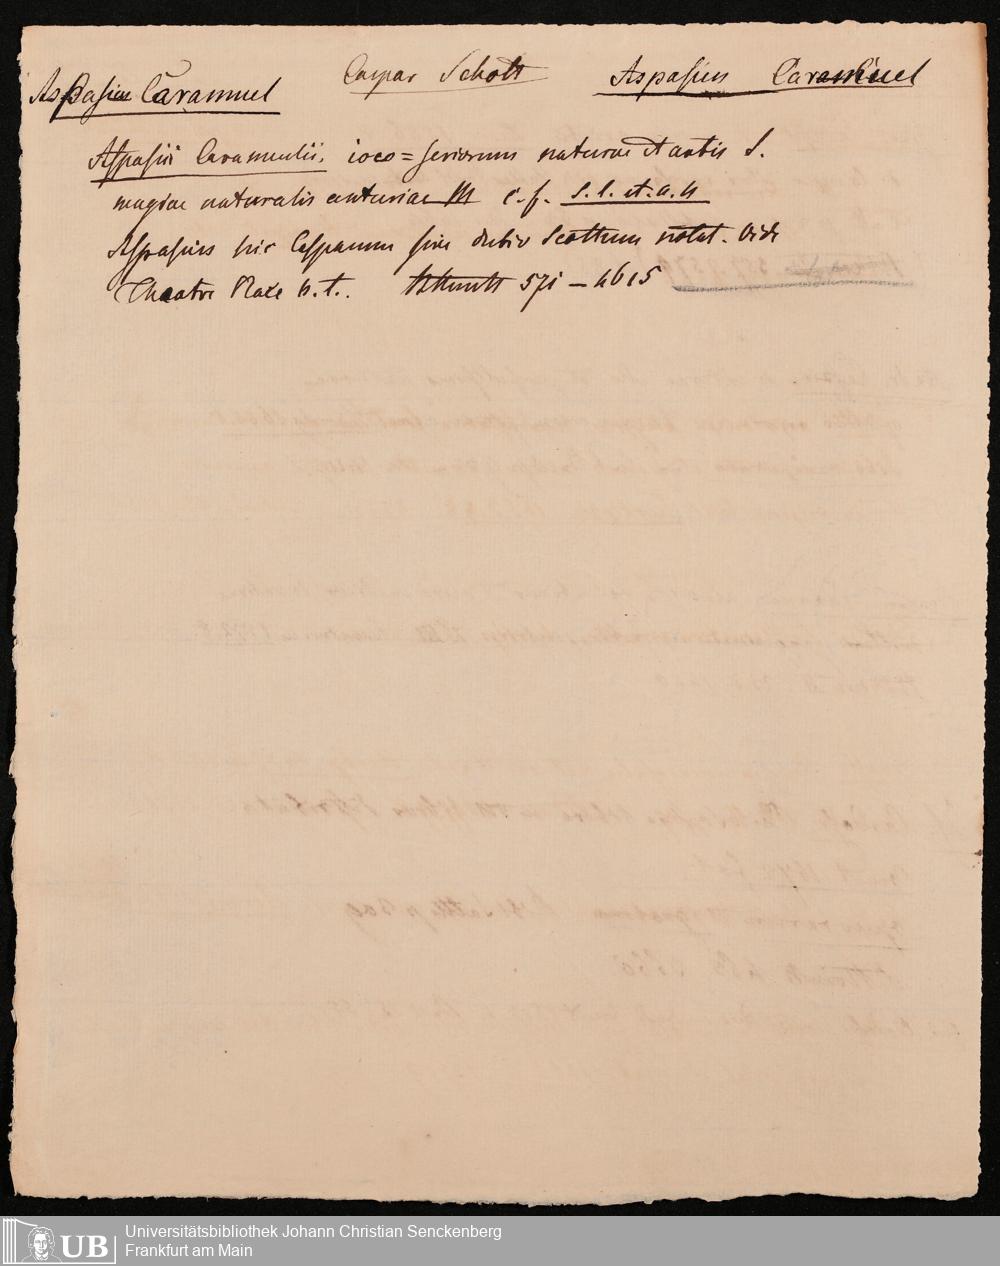 Aspasius Caramuel Caspar Schott Aspasius Caramuel
Aspasii Caramuelii, ioco=seriorum naturae et artis S.
magiae naturalis centuriae III c. f. s. l. et. a. 4
Aspasius hic Casparum sine dubio Scottum notat. Vide
Theatre h. t. 571 — 4615
Universitätsbibliothek Johann Christian Senckenberg
Frankfurt am Main
UB